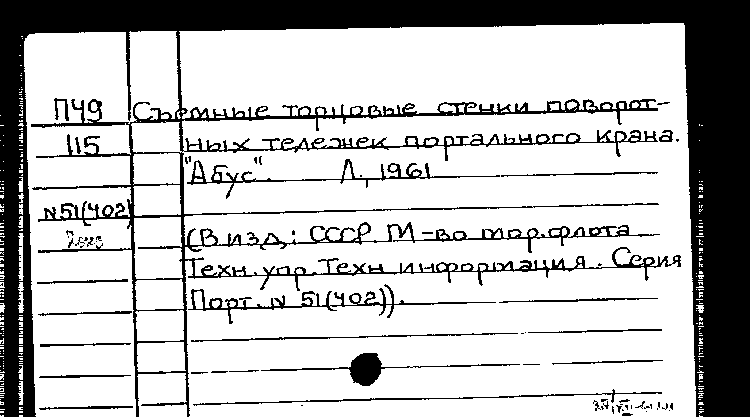 П49 Съемные торцовые стенки поворот-
115 ных тележек портального крана.
"Абус". Л., 1961
N51(402)
(В изд.: СССР. М-во мор.флота
Техн.упр.Техн информация. Серия
Порт. N 51(402)).